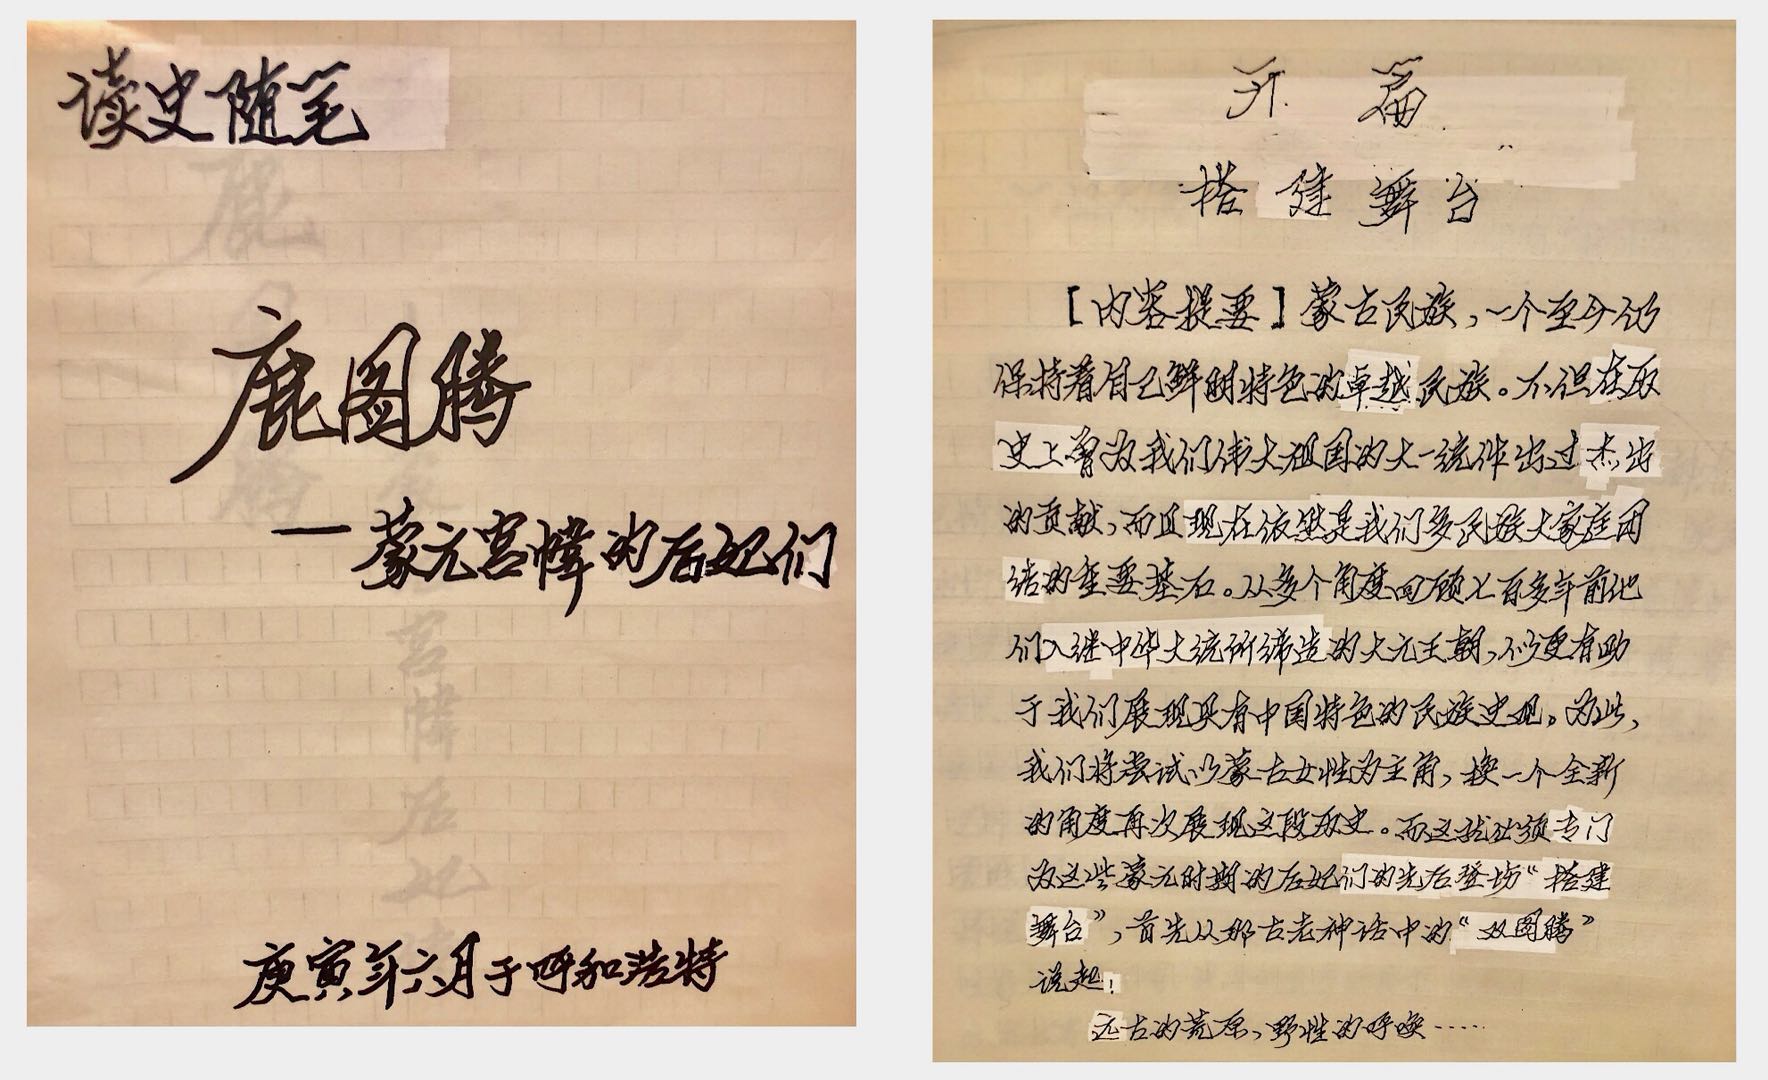 读史随笔
鹿图腾
——蒙元宫帏的后妃们
庚寅年六月于呼和浩特
开 篇
搭建舞台
【内容提要】蒙古民族，一个至今仍
保持着自己鲜明特色的卓越民族。不但在历
史上曾为我们伟大祖国的大一统作出过杰出
的贡献，而且现在依然是我们多民族大家庭团
结的重要基石。从多个角度回顾七百多年前他
们入继中华大统所缔造的大元王朝，会更有助
于我们展现具有中国特色的民族史观。为此，
我们将尝试以蒙古女性为主角，换一个全新
的角度再次展现这段历史。而这就必须专门
为这些蒙元时期的后妃们的先后登场“搭建
舞台”，首先从那古老神话中的“双图腾”
说起！
远古的荒原、野性的呼唤……